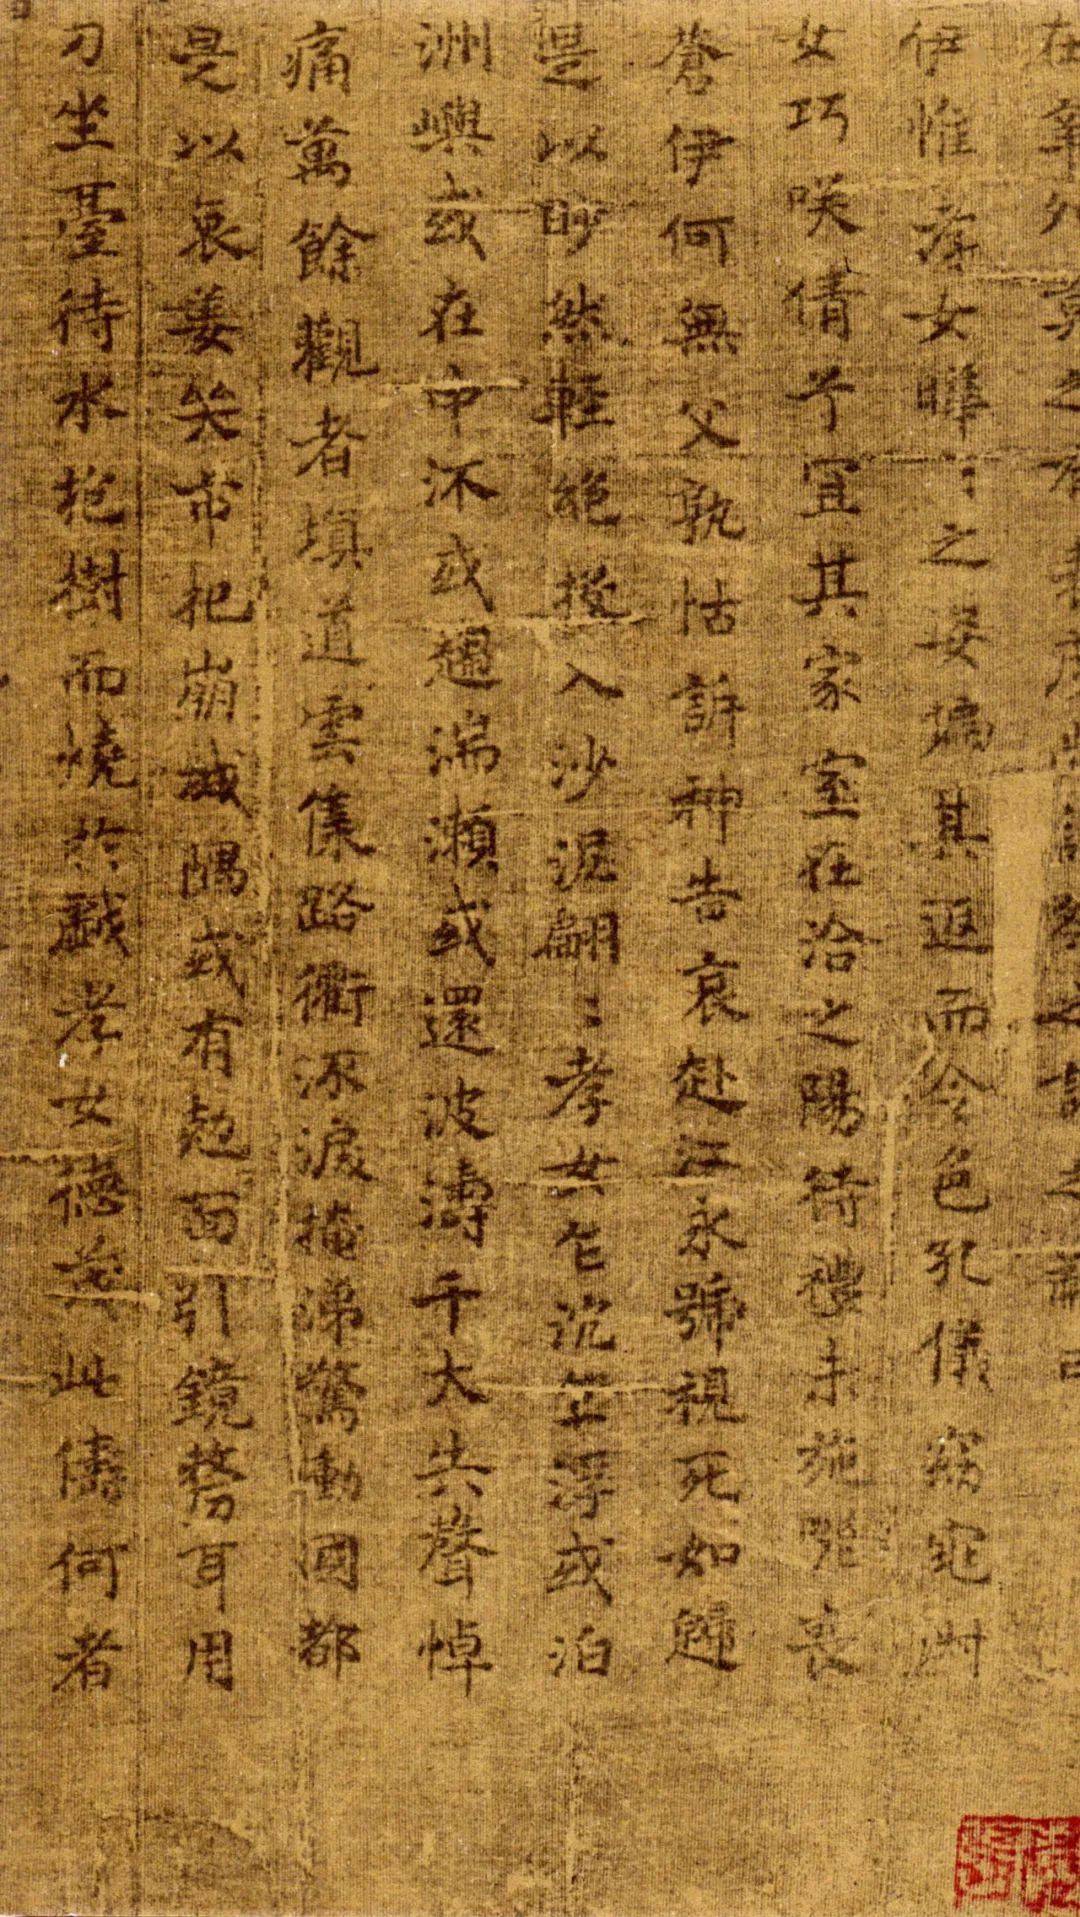 在辛卯莫之有表度尚設祭之誄之辭曰
伊惟孝女曄〻之姿偏其返而令色孔儀窈窕淑
女巧咲倩兮宜其家室在洽之陽待禮未施嗟喪
蒼伊何無父孰怙訴神告哀赴江永號視死如歸
是以眇然輕絕投入沙泥翩〻孝女乍沉乍浮或泊
洲嶼或在中流或趨湍瀨或還波濤千夫共聲悼
痛萬餘觀者填道雲集路衢流淚掩涕驚動國都
是以哀姜哭市杞崩城隅或有剋面引鏡剺耳用
刀坐臺待水抱樹而燒於戲孝女德茂此儔何者